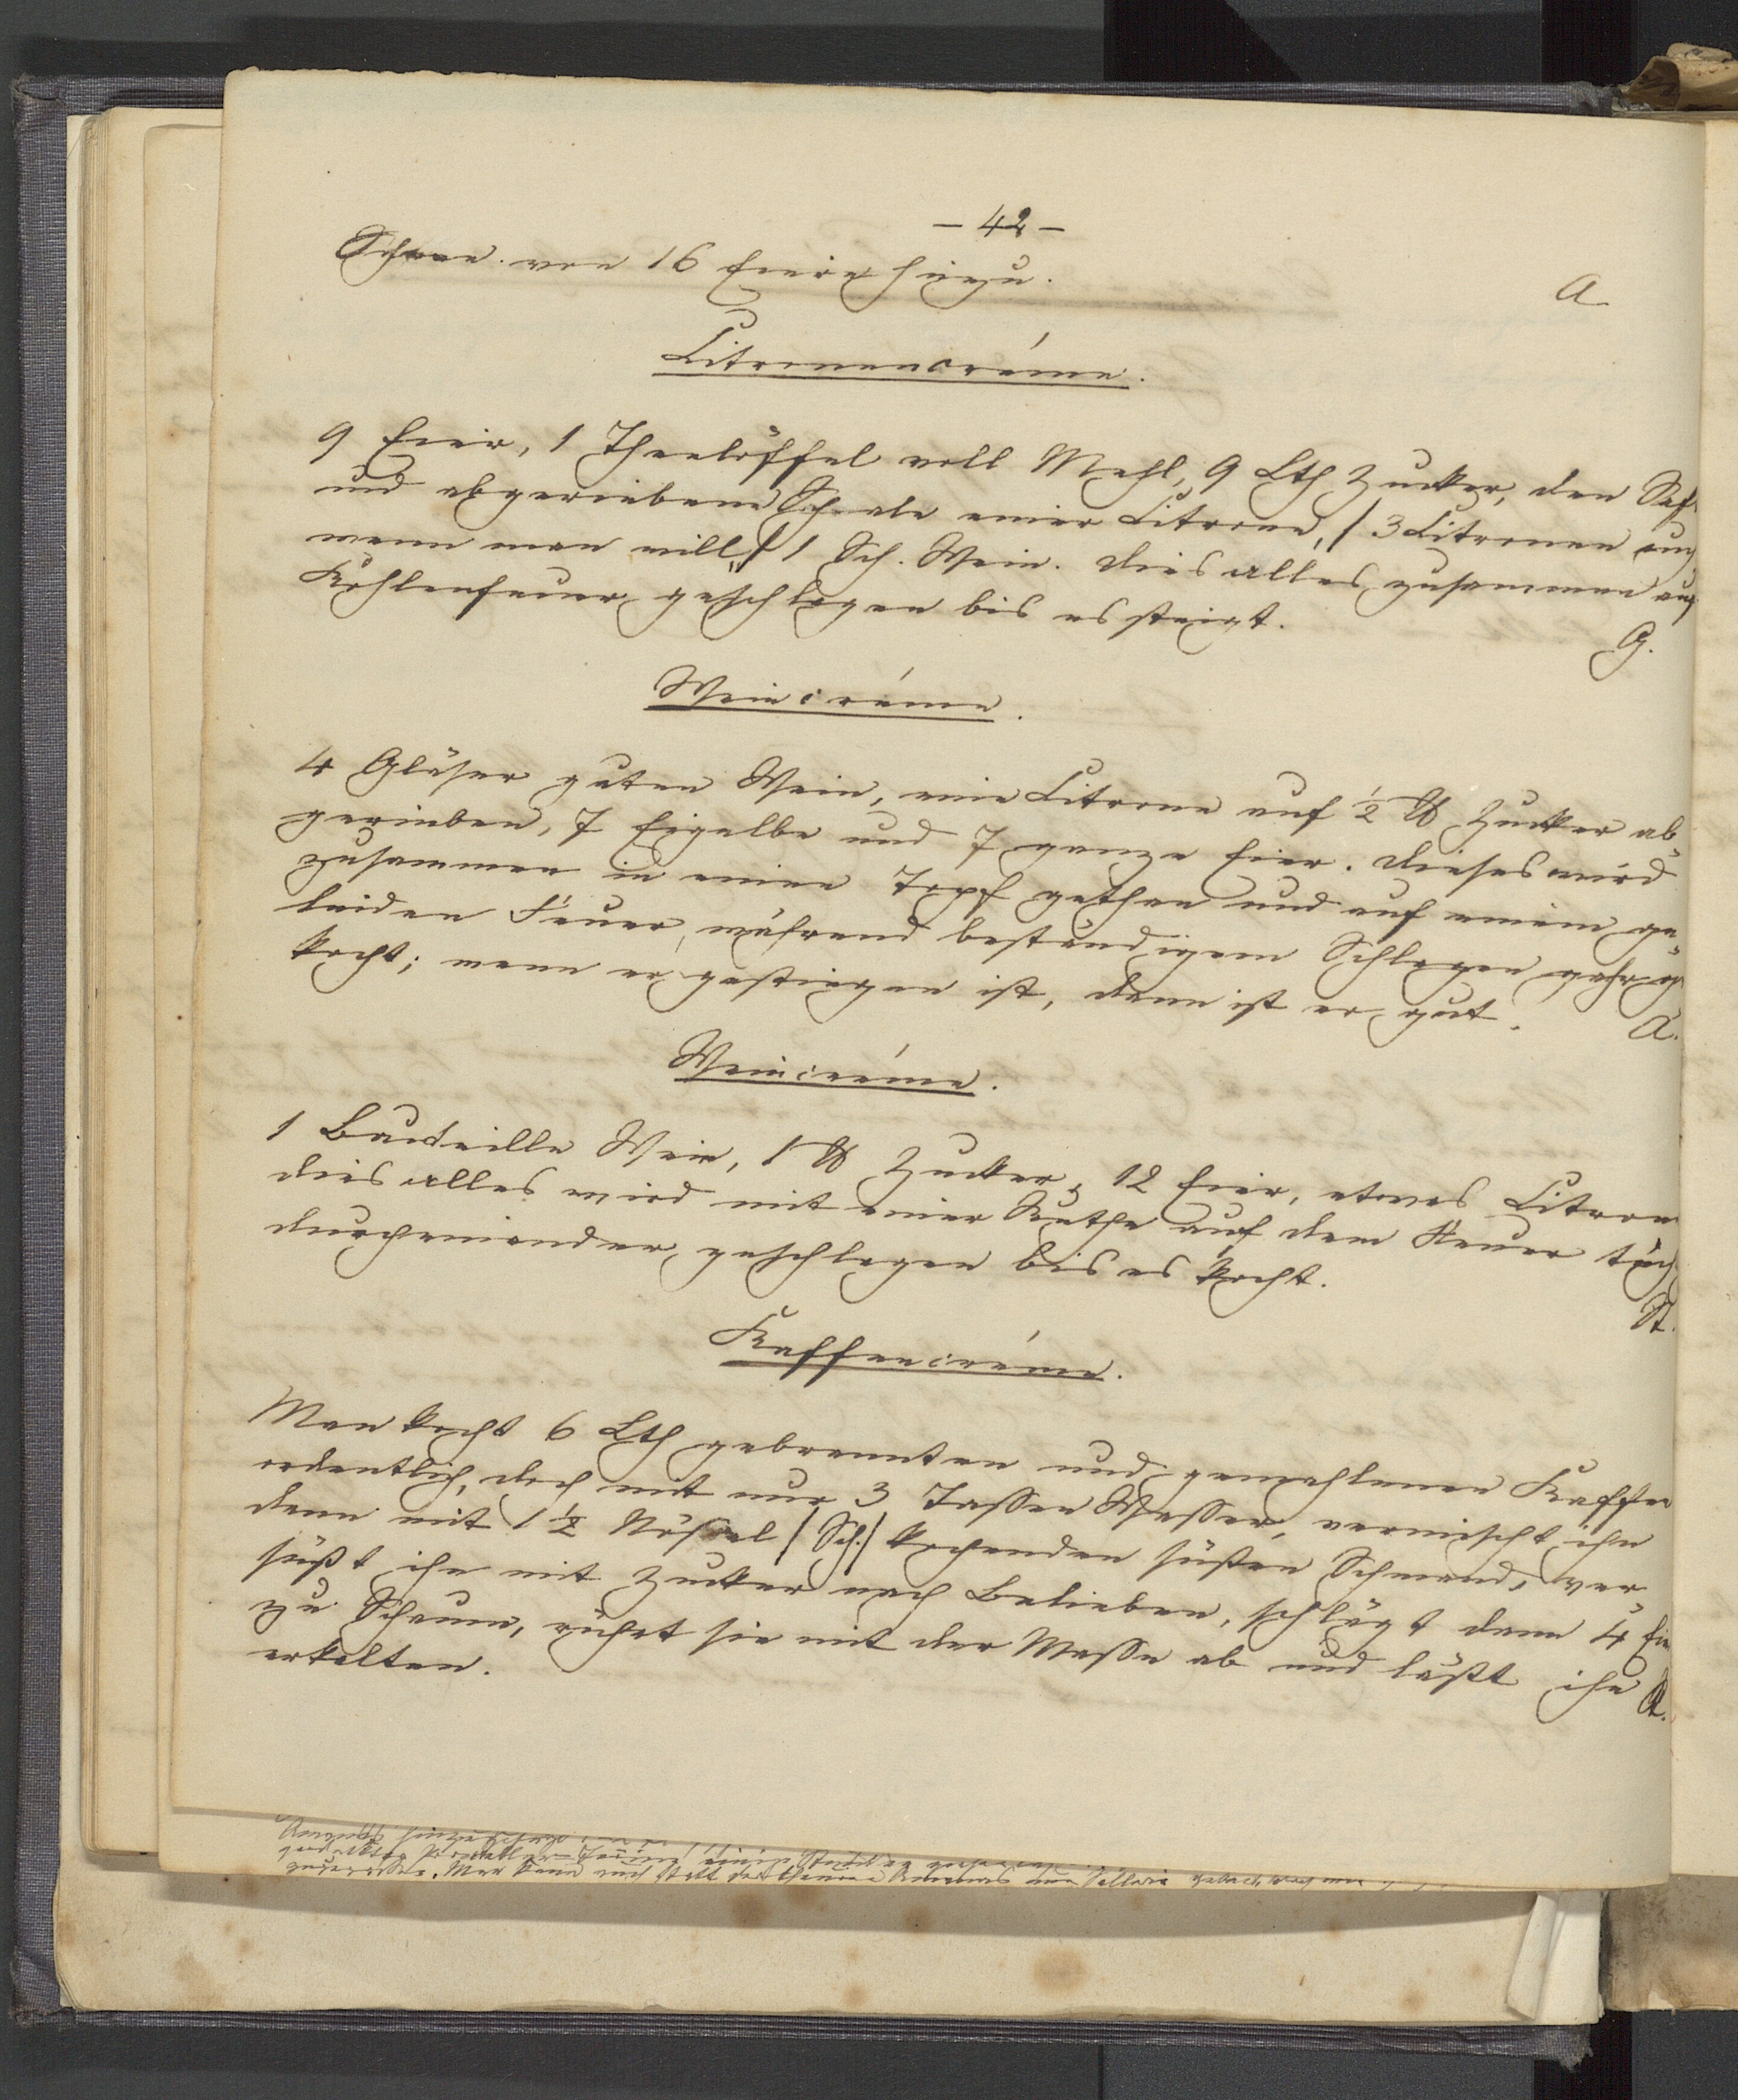 - 42 -
Schnee von 16 Eiern hinzu.
A
Citronencréme.
9 Eier, 1 Theelöffel voll Mehl, 9 Lth Zucker, den Saf
und abgeriebene Schale einer Citrone, /3 Citronen
wenn man will,/ 1 Sch. Wein. Dies alles zusammen auf
Kohlenfeuer geschlagen bis es steigt.
G.
Weincréme.
4 Gläser guten Wein, eine Citrone auf ½ ℔ Zucker ab„
gerieben, 7 Eigelbe und 7 ganze Eier. Dieses wird
zusammen in einen Topf gethan und auf einem ge„
linden Feuer, während beständigem Schlagen gahr ge
kocht; wenn er gestiegen ist, dann ist er gut.
A.
Weincréme.
1 Bouteille Wein, 1 ℔ Zucker, 12 Eier, etwas Citron
dies alles wird mit einer Ruthe auf dem Feuer tüch
durcheinander geschlagen bis es kocht.
St.
Kaffeecréme.
Man kocht 6 Lth gebrannten und gemahlenen Kaffee
ordentlich, doch mit nur 3 Tassen Wasser, vermischt ihn
dann mit 1½ Nößel /Sch./ kochenden süßen Schmand, ver„
süßt ihn mit Zucker nach Belieben, schlägt dann 4 Eie
zu Schaum, rührt sie mit der Masse ab und läßt ihn
erkalten.
A.
Man kann auch statt der Ananas